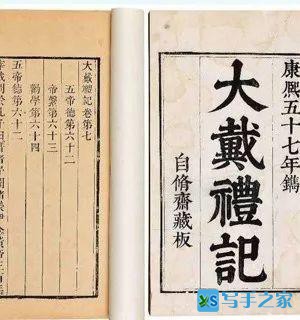 康熙五十七年鐫
大戴禮記
自脩齋藏板
大戴禮記卷第七
五帝德第六十二
帝繫第六十三
勸學第六十四
五帝德第六十二
写手之家